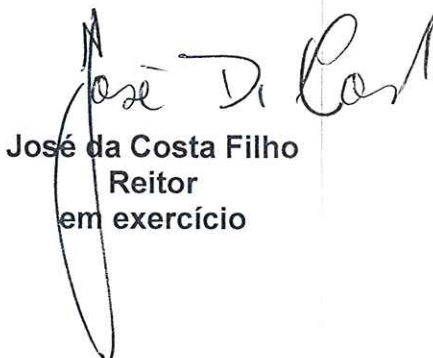 José D. Cos
José da Costa Filho
Reitor
em exercício